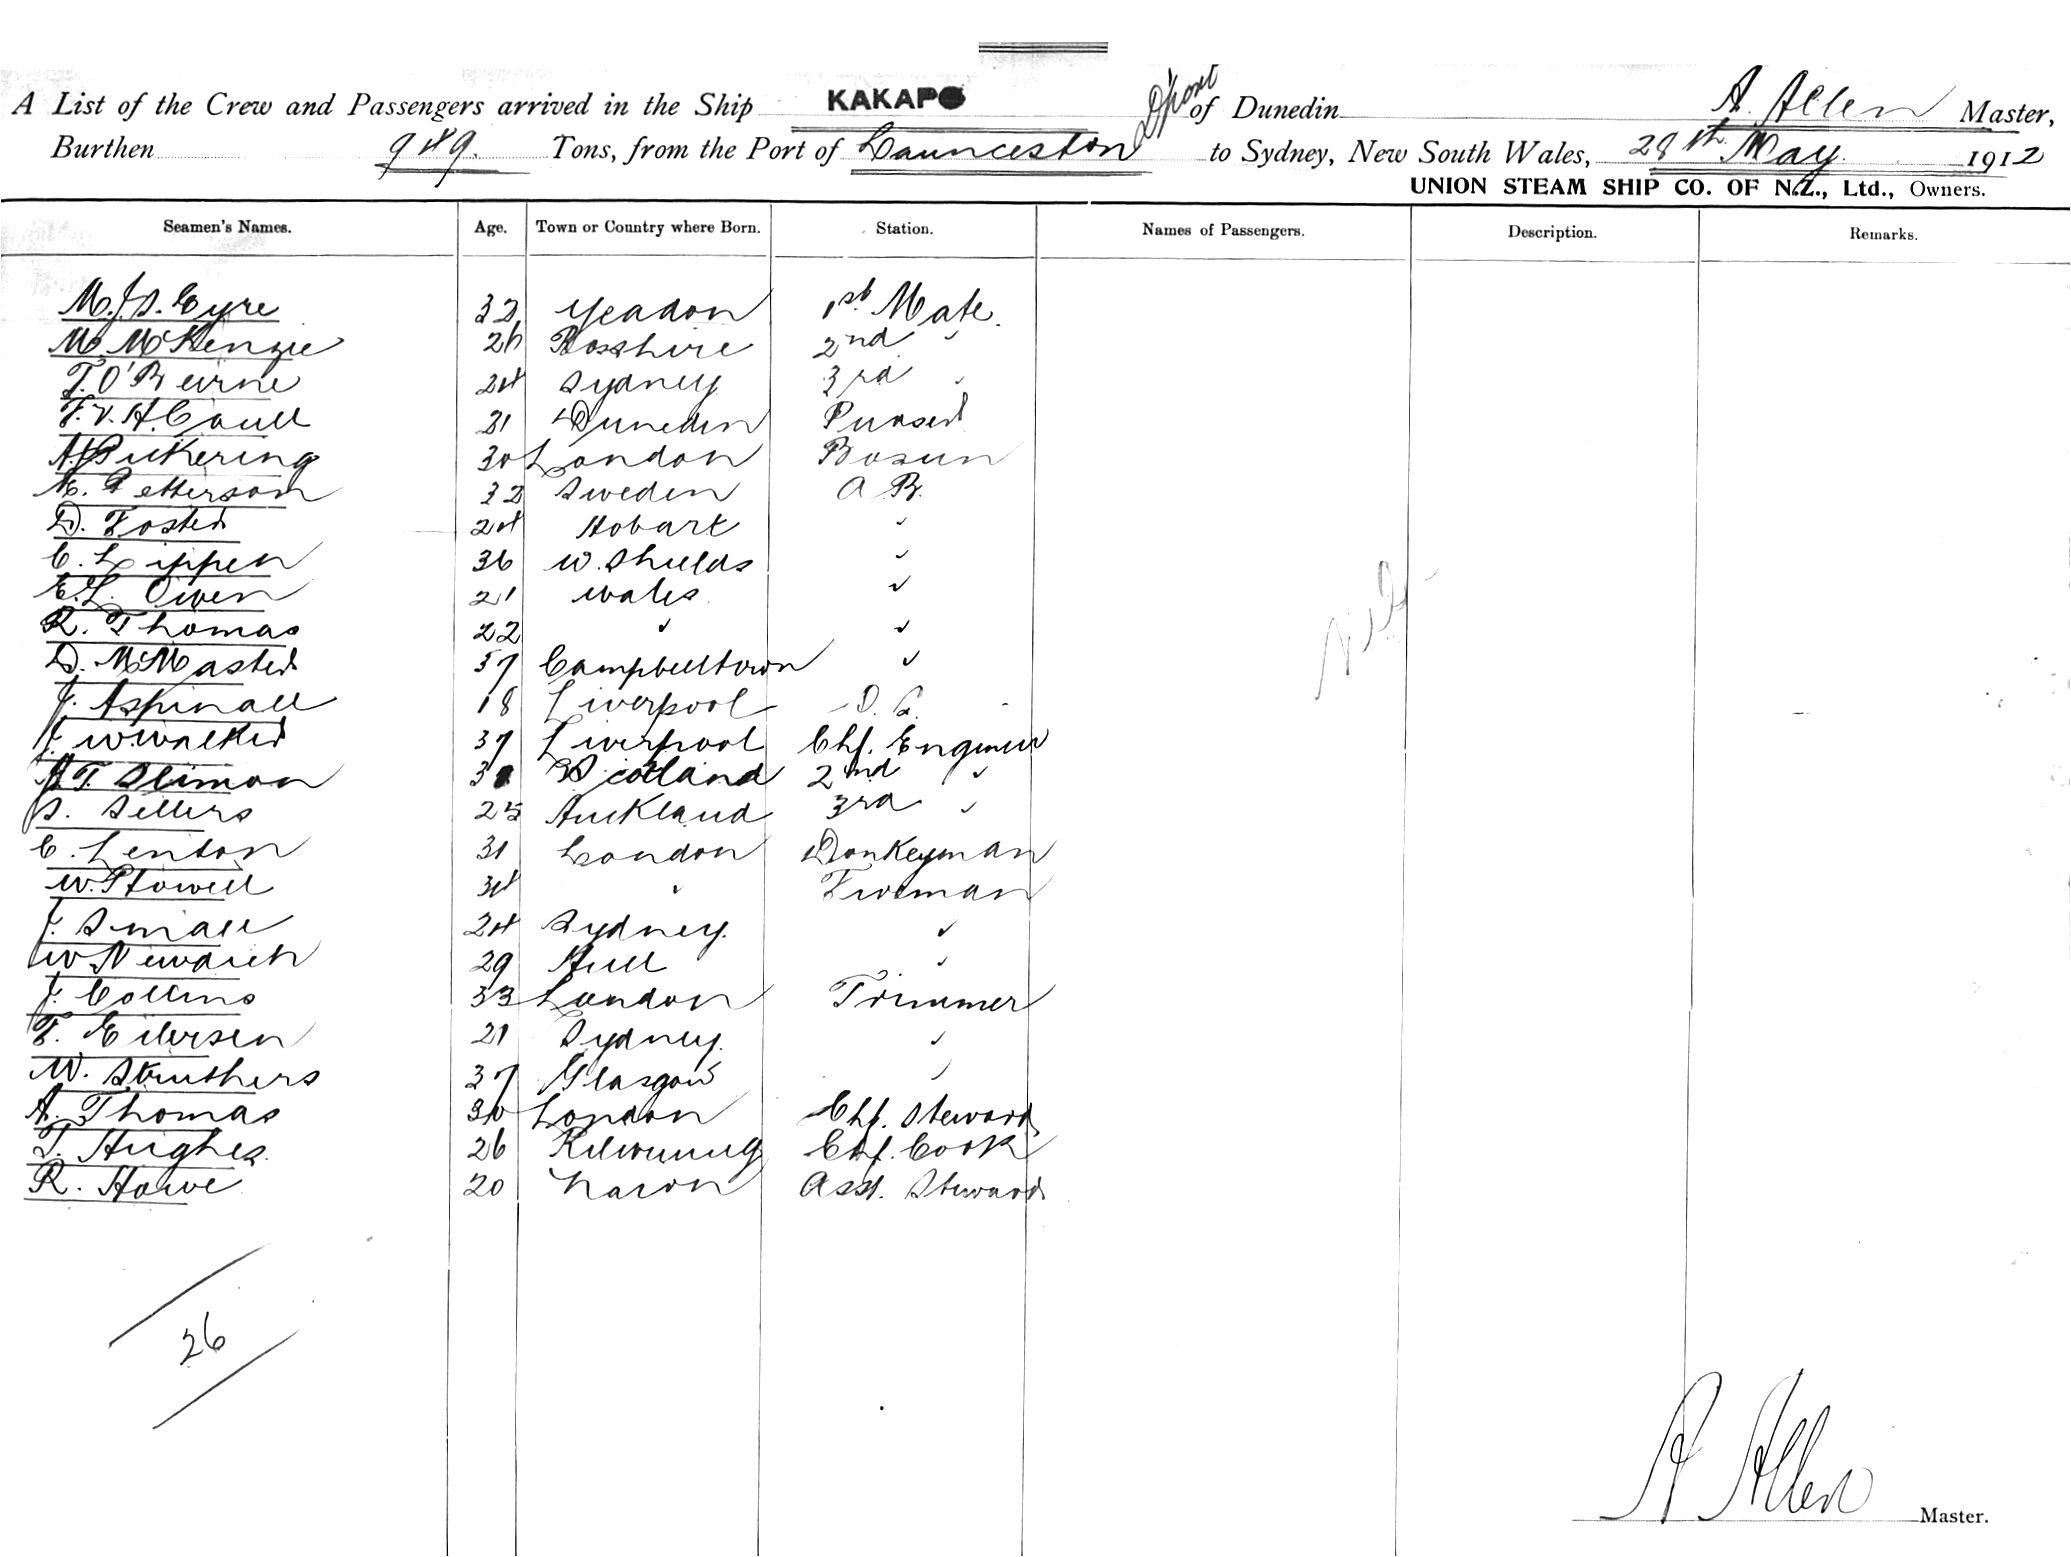 A List of the Crew and Passengers arrived in the Ship KAKAPO of Dunedin A. Allen Master,
Burthen 949. Tons, from the Port of Launceston D'port to Sydney, New South Wales, 28th May 1912
UNION STEAM SHIP CO. OF N.Z., Ltd., Owners.
Seamen's Names. Age. Town or Country where Born. Station. Names of Passengers. Description. Remarks.
M.J.S. Eyre 32 Yeadon 1st Mate.
M. McKenzie 26 Rosshire 2nd "
T. O'Beirne 24 Sydney 3rd "
F.V.H. Caull Dunedin Purser
A. Pickering 30 London Bosun
M. Petterson 32 Sweden A.B.
D. Foster 24 Hobart "
C. Lippen 36 W. Shields "
E.L. Owen 21 Wales "
R. Thomas 22 " "
D. McMaster 37 Campbelltown "
J. Aspinall 18 Liverpool O.S.
J. W. Walker 37 Liverpool Chf. Engineer
T. Slimon Scotland 2nd "
S. Sellers 25 Auckland 3rd "
C. Lenton 31 London Donkeyman
W. Powell 34 " Fireman
J. Small 24 Sydney "
W. 29 Hull "
J. Collins 33 London Trimmer
F. Eilersen 21 Sydney "
W. Struthers 37 Glasgow "
A. Thomas 30 London Chf. Steward
T. Hughes 26 Kilwinning Chf. Cook
R. Howe 20 Asst. Steward
nil
26
A Allen Master.